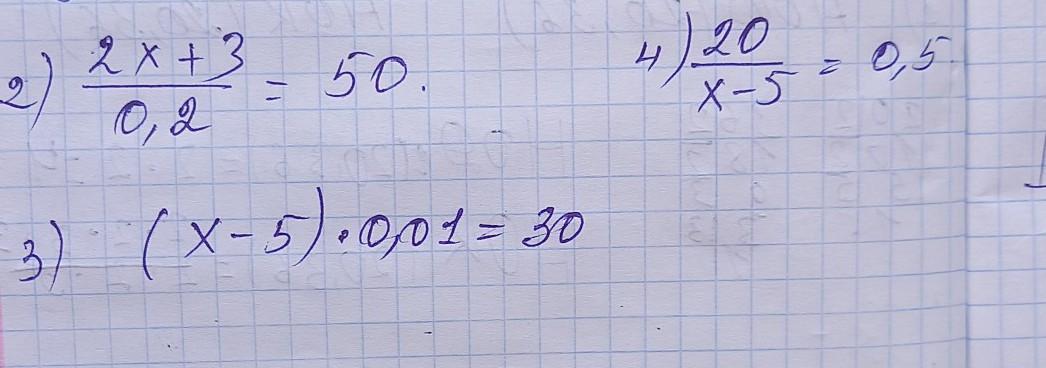 2) (2x+3)/0,2 = 50.
4) 20/(x-5) = 0,5.
3) (x-5)·0,01=30